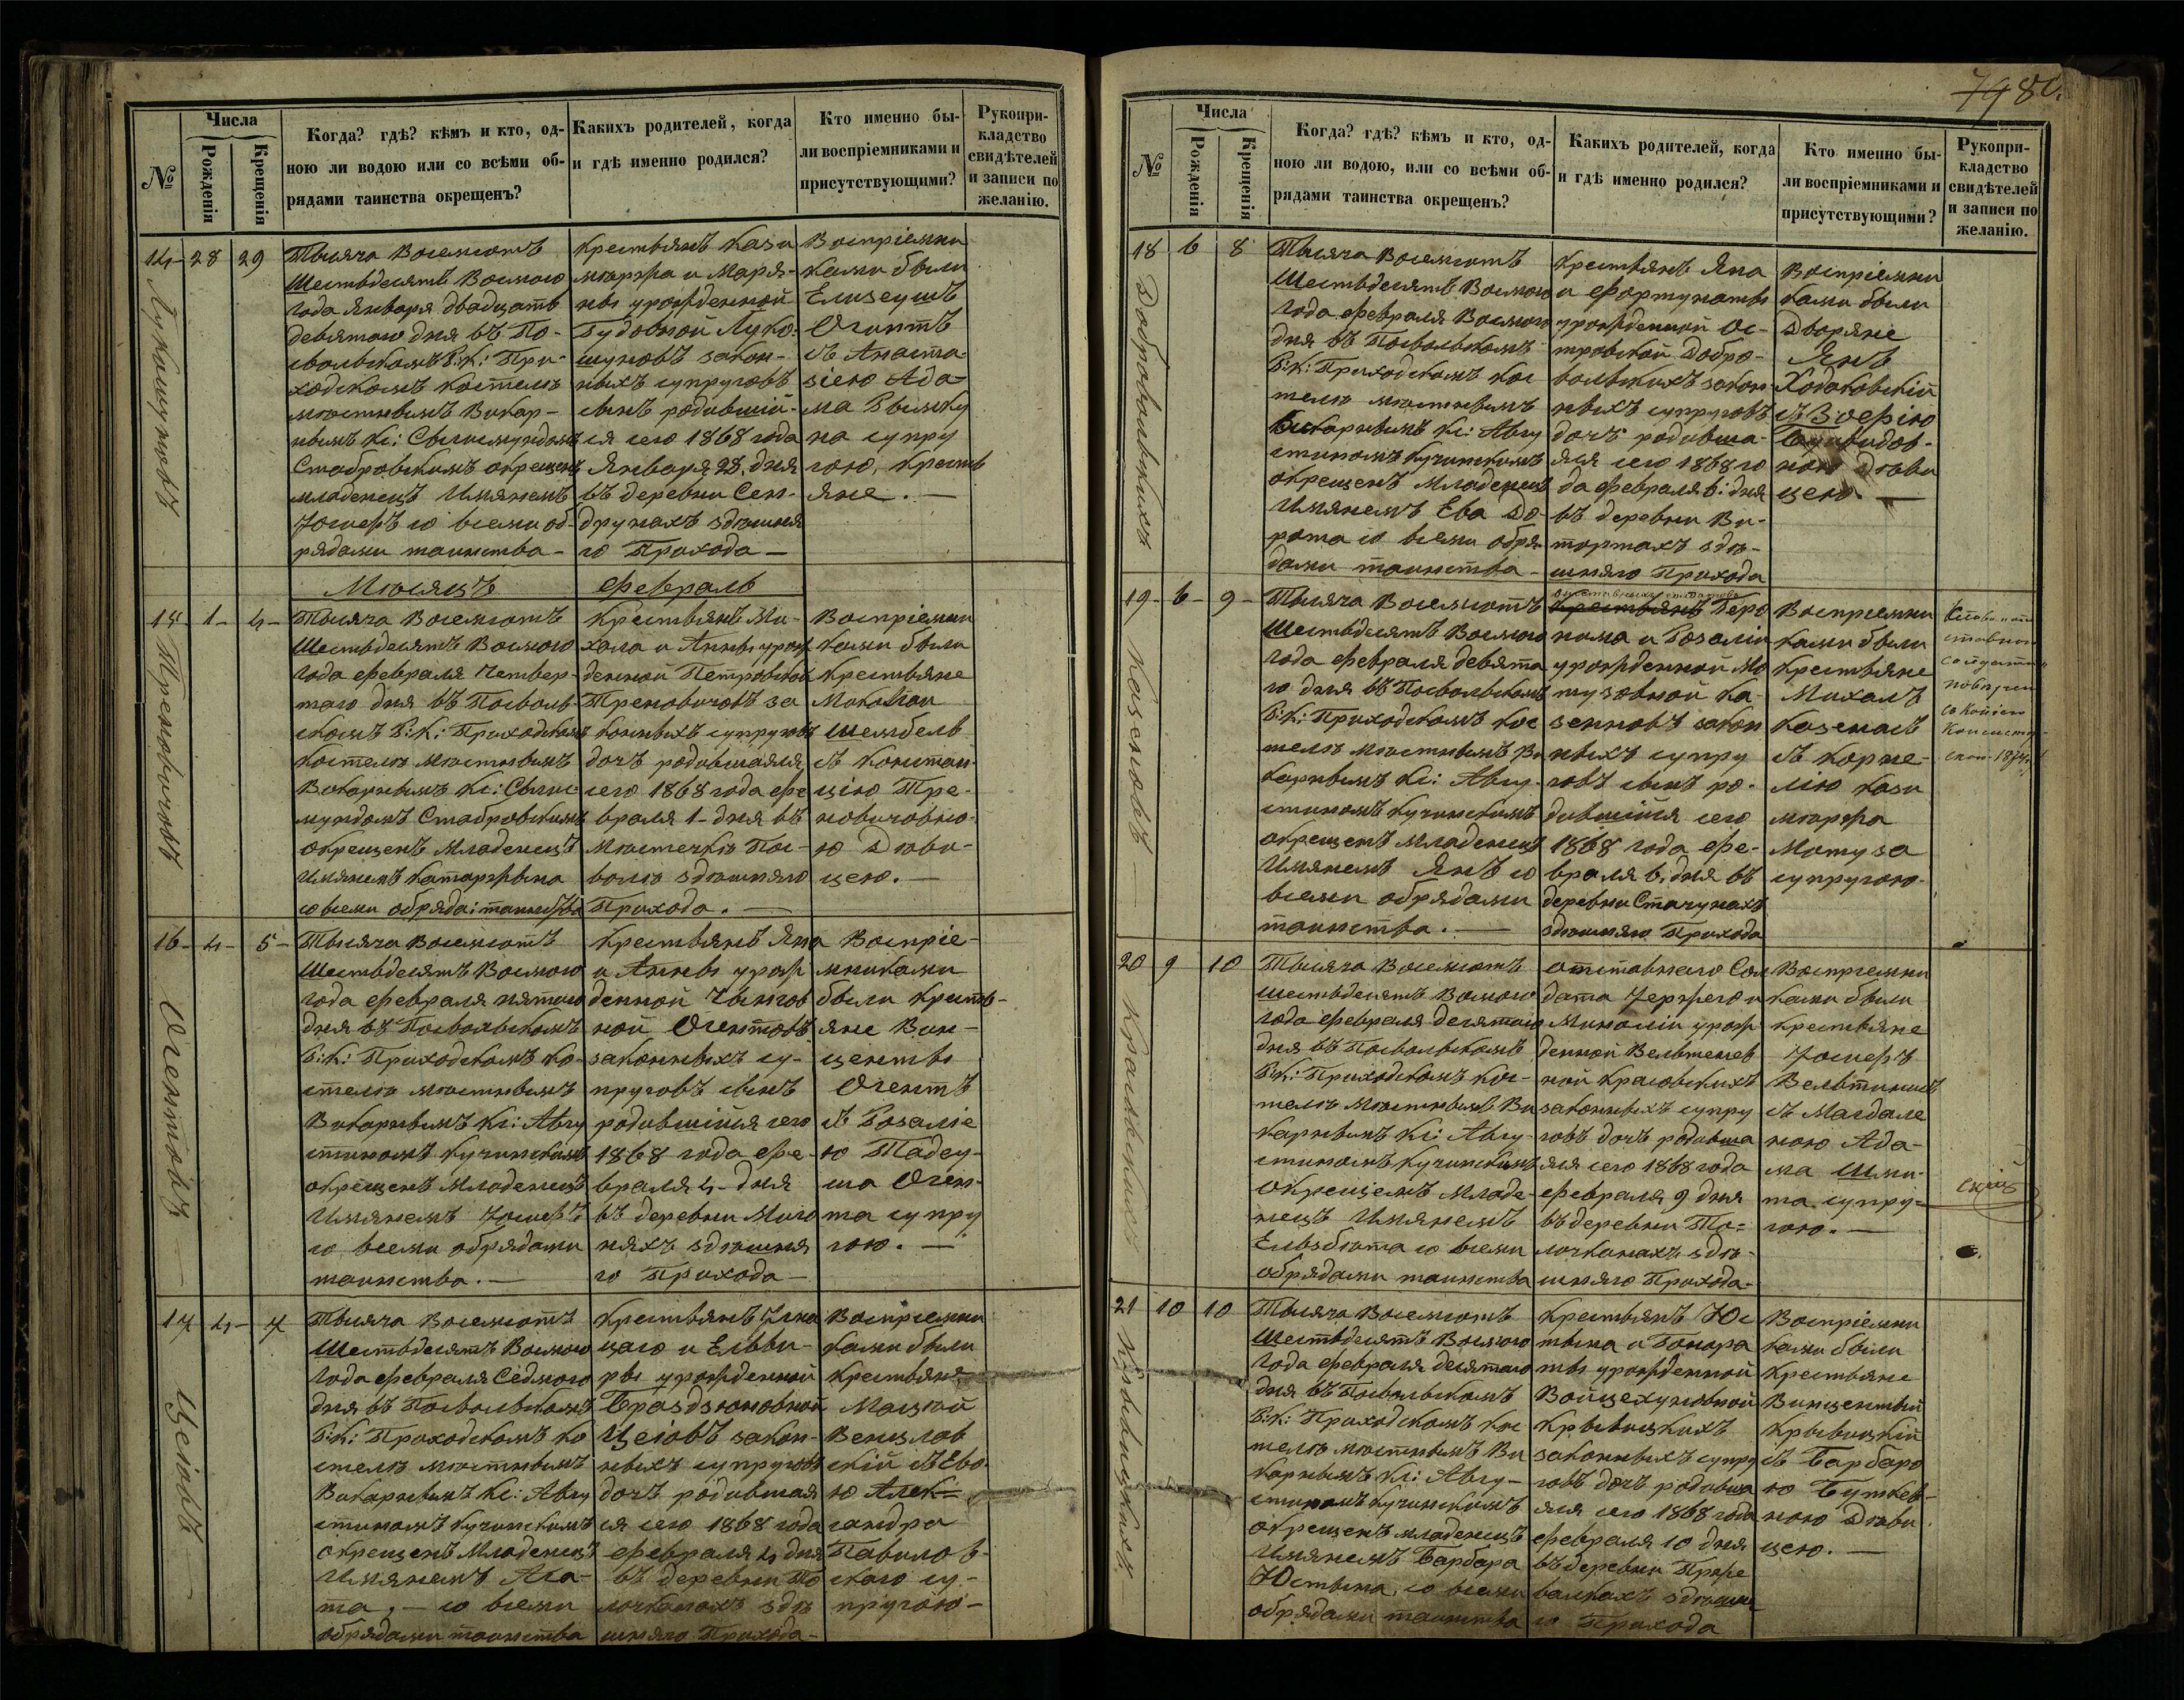 №
Числа
Рожденія
Крещенія
Когда? гдѣ? кѣмъ и кто, од-
ною ли водою или со всѣми об-
рядами таинства окрещенъ?
Какихъ родителей, когда
и гдѣ именно родился?
Кто именно бы-
ли воспріемниками и
присутствующими?
Рукопри-
кладство
свидѣтелей
и записи по
желанію.
14 28 29
Лукошуновъ
Тысяча Восемсотъ
Шестьдесятъ Восмого
года Января двадцать
девятаго дня въ По-
свольскомъ Р: К: При-
ходскомъ костелѣ
мѣстнымъ Викар-
нымъ Кс: Сыгизмундомъ
Стабровскимъ окрещенъ
младенецъ Имянемъ
Іосифъ со всеми об-
рядами таинства-
Крестьянъ Кази
мѣржа и Марья-
ны урожденной
Будовной Луко-
шуновъ закон-
ныхъ супруговъ
сынъ родившій-
ся сего 1868 года
Января 28, дня
въ деревни Сен-
друнахъ здѣшня
го Прихода-
Воспріемни
ками были
Елизеушъ
Огинтъ
съ Анаста-
зіею Ада-
ма
на супру
гою, крестья
яне.-
Мѣсяцъ Февраль
15 1- 4-
Треновичовъ
Тысяча Восемсотъ
Шестьдесятъ Восмого
года февраля Четвер-
таго дня въ Посволь
скомъ Р: К: Приходскомъ
костелѣ мѣстнымъ
Викарнымъ Кс: Сыгис
мундомъ Стабровскимъ
окрещенъ Младенецъ
Имянемъ Катаржина
со всеми обряда: таинства
Крестьянъ Ми-
хала и Анны урож
денной Петровской
Треновичовъ за
конныхъ супруговъ
дочъ родившаяся
сего 1868 года фе
враля 1- дня въ
Мѣстечкѣ Пос-
волѣ здѣшняго
Прихода.-
Воспріемни
ками были
Крестьяне
Миколай
Шембель
съ Констан-
ціею Тре-
новичовно-
ю Дѣви-
цею.-
16- 4- 5-
Огентовъ
Тысяча Восемсотъ
Шестьдесятъ Восмого
года февраля пятого
дня въ Посвольскомъ
Р: К: Приходскомъ ко-
стелѣ мѣстнымъ
Викарнымъ Кс: Авгу
стиномъ Кучинскимъ
окрещенъ Младенецъ
Имянемъ Іосифъ
со всеми обрядами
таинства.-
Крестьянъ Яна
и Анны урож
денной
ной Огентовъ
законныхъ су-
пруговъ сынъ
родившійся сего
1868 года фе-
враля 4- дня
въ деревни Миго
няхъ здѣшня
го Прихода-
Воспріе-
мниками
были Кресть-
яне Вин-
центы
Огентъ
съ Розаліе
ю Тадеу-
ша Оген-
та супру
гою.-
17 4- 7
Цеговъ
Тысяча Восемсотъ
Шестьдесятъ Восмого
года февраля Седмого
дня въ Посвольскомъ
Р: К: Приходскомъ ко
стелѣ мѣстнымъ
Викарнымъ Кс: Авгу
стиномъ Кучинскимъ
окрещенъ Младенецъ
Имянемъ Ага-
та,- со всеми
обрядами таинства
Крестьянъ Игна
цаго и Ельви-
ры урожденной
Цеговъ закон-
ныхъ супруговъ
дочъ родившая
ся сего 1868 года
февраля 4 дня
въ деревни То
лочканахъ здѣ
шняго Прихода-
Воспріемни
ками были
Крестьяне
Мацей
Венцлав
скій съ Ево
ю Алек=
сандра
Павилов-
скаго су-
пругою-
79 80.
№
Числа
Рожденія
Крещенія
Когда? гдѣ? кѣмъ и кто, од-
ною ли водою, или со всѣми об-
рядами таинства окрещенъ?
Какихъ родителей, когда
и гдѣ именно родился?
Кто именно бы-
ли воспріемниками и
присутствующими?
Рукопри-
кладство
свидѣтелей
и записи по
желанію.
18 6 8
Добровольскихъ
Тысяча Восемсотъ
Шестьдесятъ Восмого
года февраля Восмого
дня въ Посвольскомъ
Р: К: Приходскомъ кос
телѣ мѣстнымъ
Викарнымъ Кс: Авгу
стиномъ Кучинскимъ
окрещенъ Младенецъ
Имянемъ Ева До-
рота со всеми обря
дами таинства-
Крестьянъ Яна
и Фортунаты
урожденной Ос-
тровской Добро-
вольскихъ закон
ныхъ супруговъ
дочъ родивша-
яся сего 1868 го
да февраля 6: дня
въ деревни Ви-
тортахъ здѣ-
шняго Прихода
Воспріемни
ками были
Дворяне
Янъ
Ходаковскій
съ Зофіею
ною Дѣви
цею.-
19- 6- 9-
Казеновъ
Тысяча Восемсотъ
Шестьдесятъ Восмого
года февраля девята
го дня въ Посвольскомъ
Р: К: Приходскомъ кос
телѣ мѣстнымъ Ви
карнымъ Кс: Авгу-
стиномъ Кучинскимъ
окрещенъ Младенецъ
Имянемъ Янъ со
всеми обрядами
таинства.-
Крестьянъ Геро
нима и Розаліи
урожденной Мо
тузовной Ка-
зеновъ закон
ныхъ супру
говъ сынъ ро-
дившійся сего
1868 года фе-
враля 6, дня въ
деревни Стачунахъ
здѣшняго Прихода
Воспріемни
ками были
Крестьяне
Михалъ
Каземасъ
съ Корне-
ліею Кази
мѣржа
Мотуза
супругою-
20 9 10
Красовскихъ
Тысяча Восемсотъ
Шестьдесятъ Восмого
года февраля десятаго
дня въ Посвольскомъ
Р: К: Приходскомъ Кос-
телѣ Мѣстнымъ Ви
карнымъ Кс: Авгу-
стиномъ Кучинскимъ
окрещенъ Младе-
нецъ Имянемъ
Ельзбѣта со всеми
обрядами таинства
отставнаго Сол
дата Іержего и
урож
денной Вельтенев
ной Красовскихъ
законныхъ супру
говъ дочъ родивша
яся сего 1868 года
февраля 9 дня
въ деревни То=
лочканахъ здѣ-
шняго Прихода-
Воспріемни
ками были
Крестьяне
Іосифъ
съ Магдале
ною Ада-
ма
та супру=
гою.-
21 10 10
Крывицкихъ
Тысяча Восемсотъ
Шестьдесятъ Восмого
года февраля десятаго
дня въ Посвольскомъ
Р: К: Приходскомъ кос
телѣ мѣстнымъ Ви
карнымъ Кс: Авгу-
стиномъ Кучинскимъ
окрещенъ младенецъ
Имянемъ Барбара
Юстына, со всеми
обрядами таинства
Крестьянъ Юс
тына и Гонора
ты урожденной
Войцехуновной
Крывицкихъ
законныхъ супру
говъ дочъ родивша
яся сего 1868 года
февраля 10 дня
въ деревни Прже
валкахъ здѣшня
го Прихода
Воспріемни
ками были
Крестьяне
Винцентый
Крывицкій
съ Барбаро
ю Буткев-
ною Дѣви
цею.-